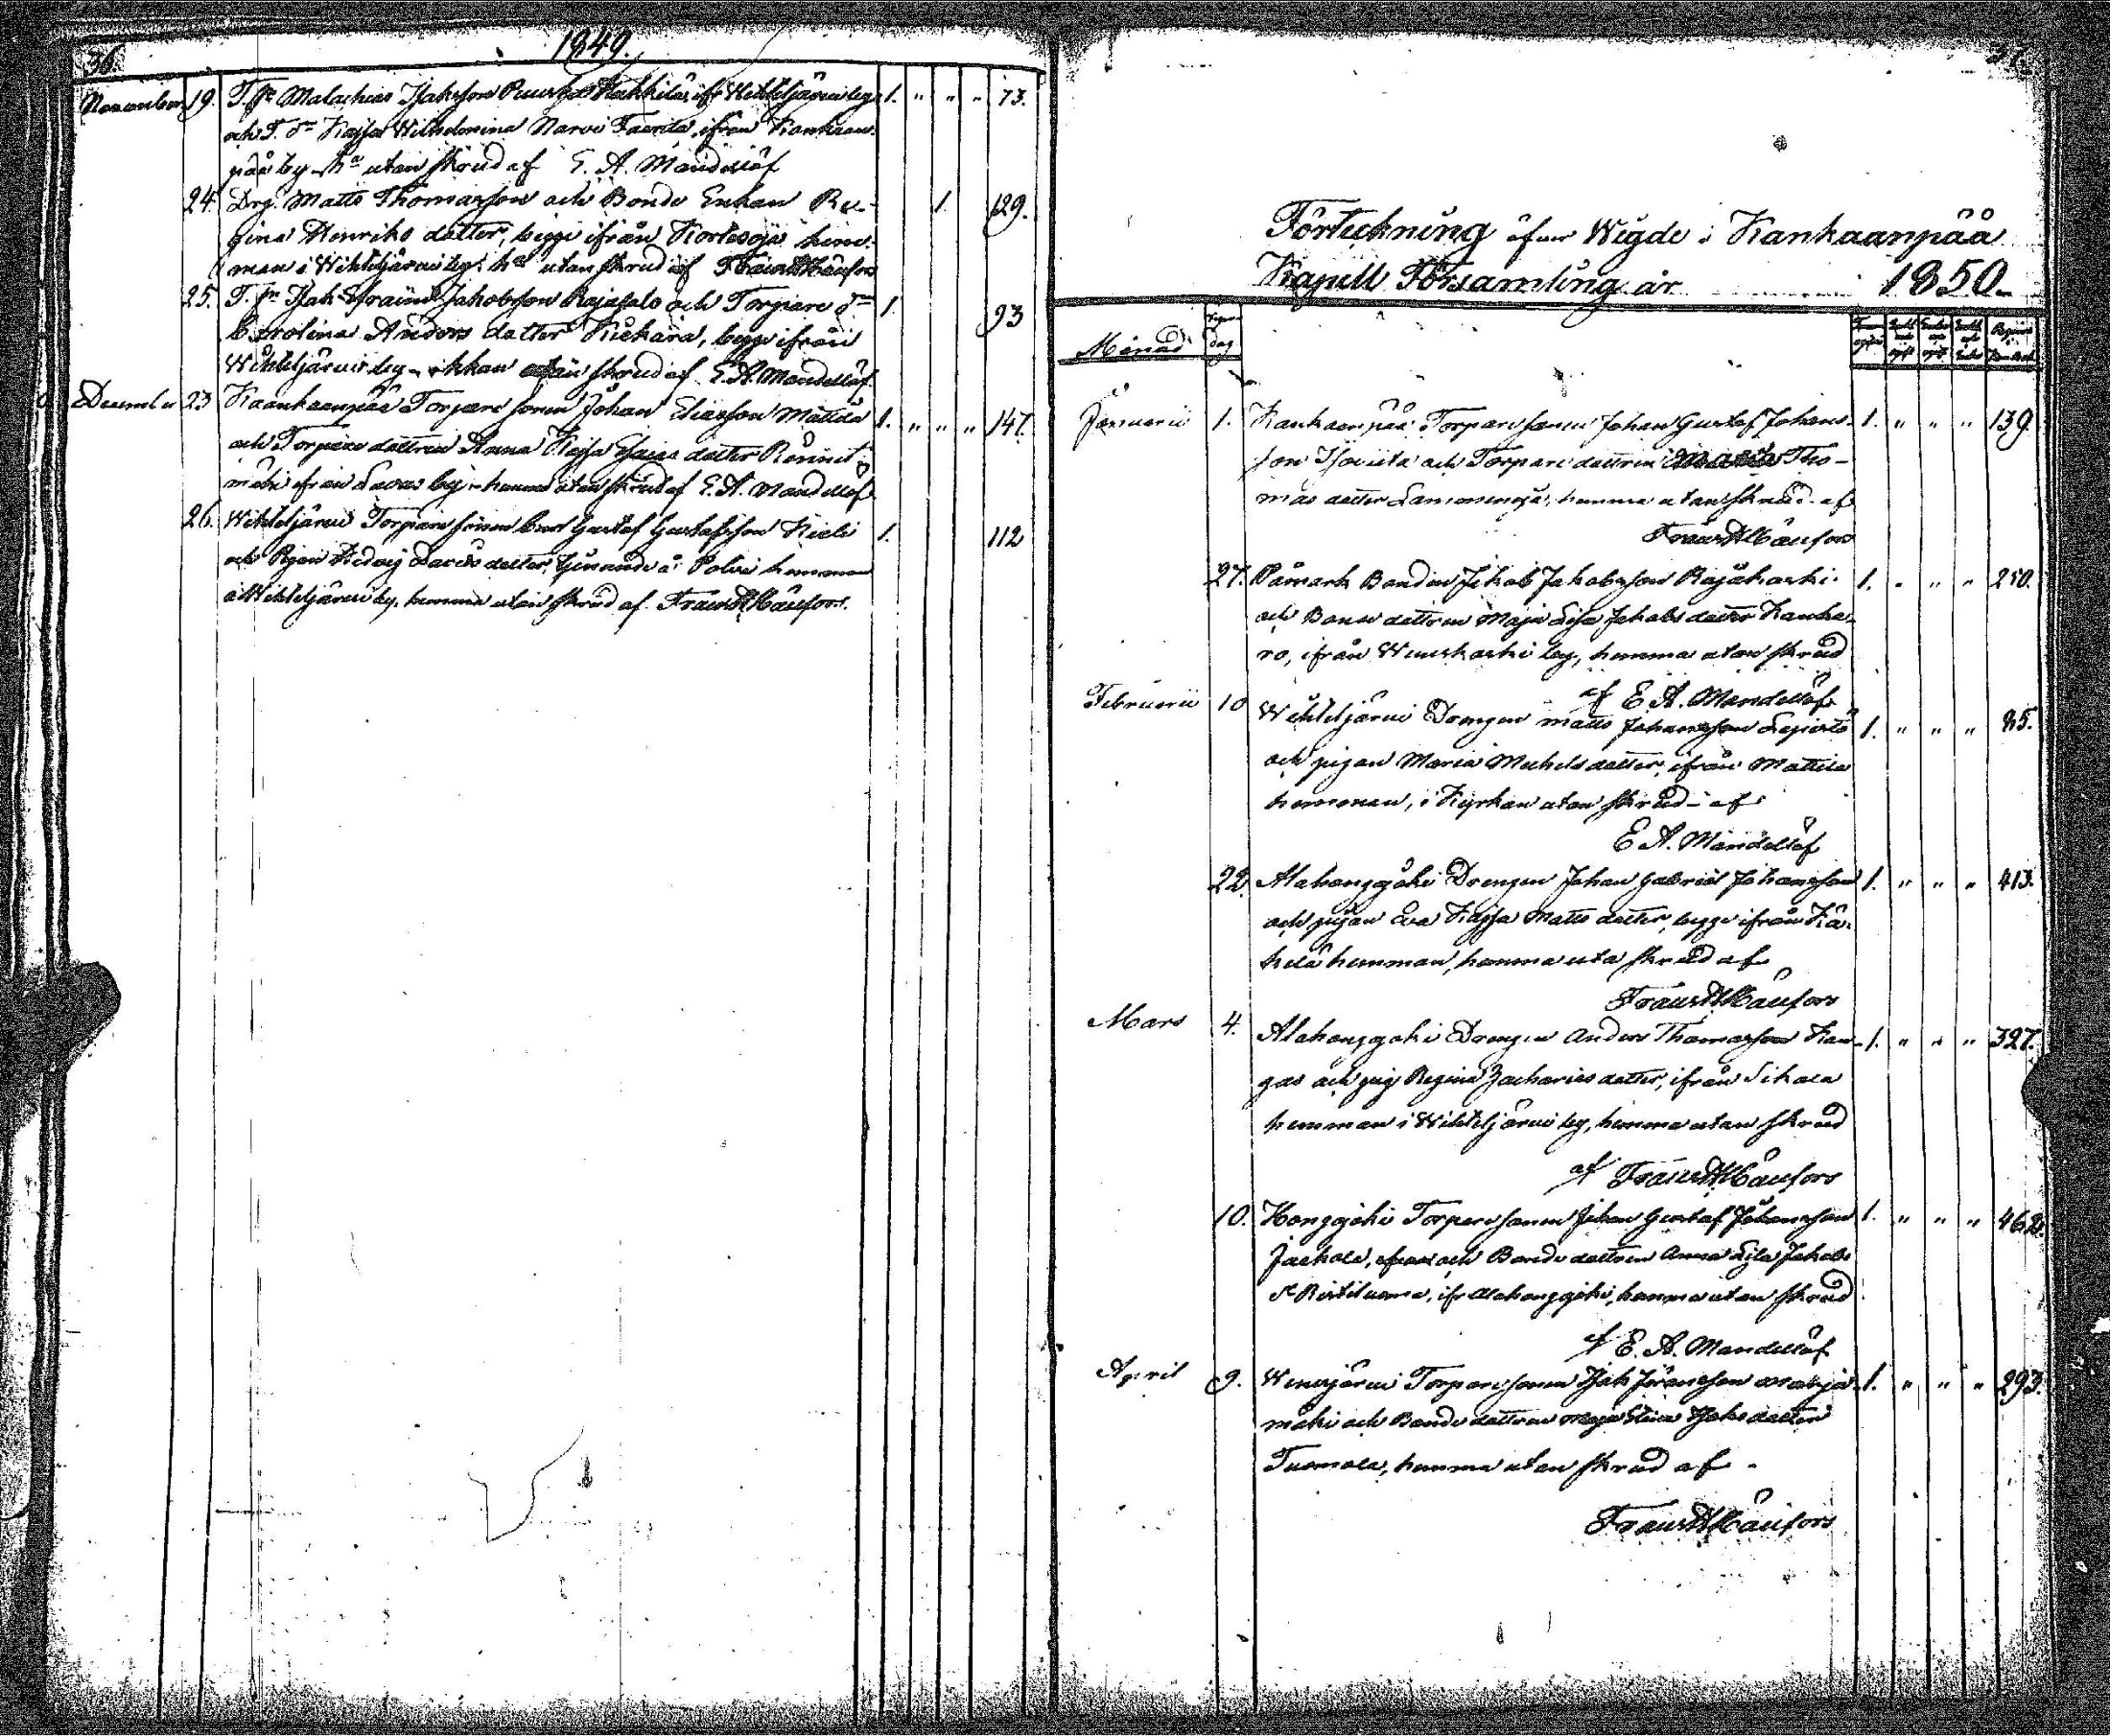 36.
1849.
November 19. T. sn Malachias Isaksson Puusk Hakkila, ifr Wihteljärvi by 1. " " " 73.
och T. dr Kajsa Wilhelmina, ifrån Kankaan-
pää by, ha utan skrud af E. A. Mandellöf
24. Drg. Matts Thomasson och Bonde Enkan Re- 1. 129.
gina Henriks dotter, begge ifrån Kortesoja hem-
man i Wihteljärvi by, ha utan skrud af Frans W Känfors
25. T. sn Isak Efraim Jakobsson Rajasalo och Torpare dr 1. 93
Carolina Anders dotter Kiekara, begge ifrån
Wihteljärvi by utan skrud af E. A. Mandellöf
December 23 Kaankaanpää Torpare sonen Johan Eliasson Mattila 1. " " " 147.
och Torpare dottren Anna Kajsa Esaias dotter
mäki ifrån Lavas by, hemma utan skrud af E. A. Mandellöf
26. Wihteljärvi Torpare sonen Carl Gustaf Gustafsson 1. 112
och Pigan Hedvig dotter, tjenande å Polvi hemman
i Wihteljärvi by, hemma utan skrud af Frans W Känfors.
37.
Förteckning öfver Wigde i Kankaanpää
Kapell Församling år 1850.
Månad dag
Januarii 1. Kankaanpää Torpare sonen Johan Gustaf Johans- 1. " " " 139.
son och Torpare dottren Maria Tho-
mas dotter Lammenoja, hemma utan skrud af
Frans W Känfors
27. Påmark Bonden Jakob Jakobsson Rajakoski 1. " " " 250.
och Bonde dottren Maja Lisa Jakobs dotter Kanka-
ro, ifrån Weneskoski by, hemma utan skrud
af E A. Mandellöf
Februarii 10 Wihteljärvi Drengen Matts Johansson Lepistö 1. " " " 85.
och pigan Maria Michels dotter, ifrån Mattila
hemman, i Kyrkan utan skrud af
E A. Mandellöf
22. Alahonggoki Drengen Johan Gabriel Johansson 1. " " " 413.
och pigan Eva Kajsa Matts dotter, begge ifrån Kä-
helä hemman, hemma uta skrud af
Frans W Känfors
Mars 4. Alahonggoki Drengen Anders Thomasson Kan- 1. " " " 327.
gas och pig Regina Zacharias dotter, ifrån Sikala
hemman i Wihteljärvi by, hemma utan skrud
af Frans W Känfors
10. Honggoki Torpare sonen Johan Gustaf Johansson 1. " " " 462.
Jaekola, och Bonde dottren Anna Lisa Jakobs
dr Ristiluoma, ifr Alahonggoki, hemma utan skrud
af E. A. Mandellöf
April 9. Wenesjärvi Torpare sonen Isak Jöransson Marja- 1. " " " 293.
mäki och Bonde dottren Maja Stina Isaks dotter
Tuomola, hemma utan skrud af
Frans W Känfors